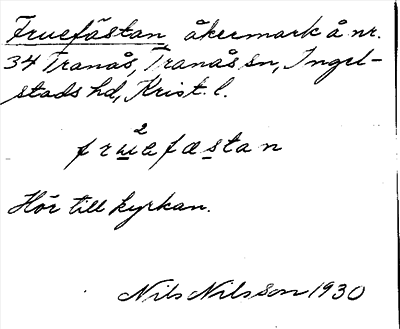 Fruefästan åkermark å nr.
34 Tranås, Tranås sn, Ingel-
stads hd, Krist. l.
2
fruefæstan
Hör till kyrkan.
Nils Nilsson 1930